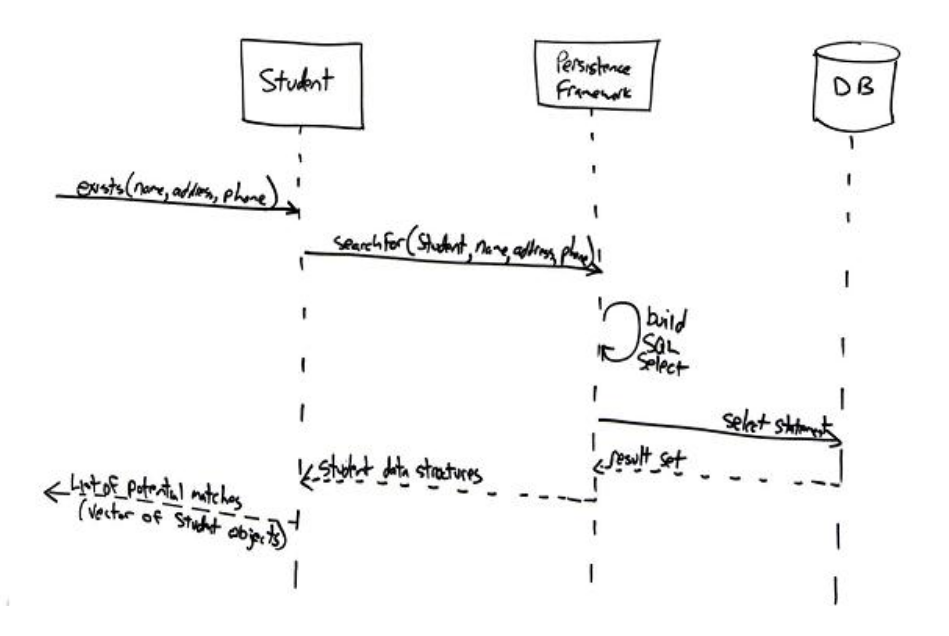 Student
Persistence
Framework
DB
exists(name, address, phone)
searchFor(Student, name, address, phone)
build
SQL
Select
select statement
result set
Student data structures
List of potential matches
(vector of Student objects)